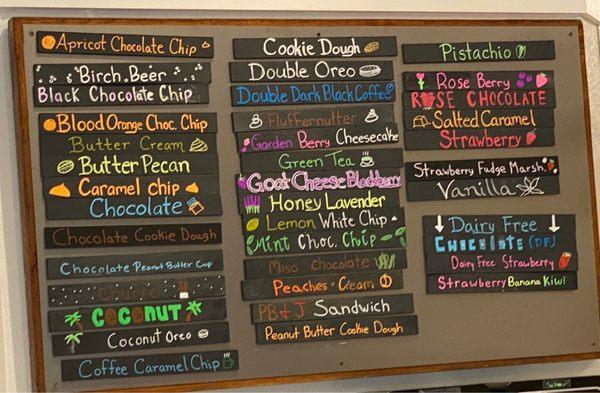 Apricot Chocolate Chip
Birch Beer
Black Chocolate Chip
Blood Orange Choc. Chip
Butter Cream
Butter Pecan
Caramel chip
Chocolate
Chocolate Cookie Dough
Chocolate Peanut Butter Cup
Churro
COCONUT
Coconut Oreo
Coffee Caramel Chip
Cookie Dough
Double Oreo
Double Dark Black Coffee
Fluffernutter
Garden Berry Cheesecake
Green Tea
Goat Cheese Blackberry
Honey Lavender
Lemon White Chip
Mint Choc. Chip
Miso Chocolate
Peaches & Cream
PB & J Sandwich
Peanut Butter Cookie Dough
Pistachio
Rose Berry
ROSE CHOCOLATE
Salted Caramel
Strawberry
Strawberry Fudge Marsh.
Vanilla
Dairy Free
CHOCOLATE (DF)
Dairy Free Strawberry
Strawberry Banana Kiwi